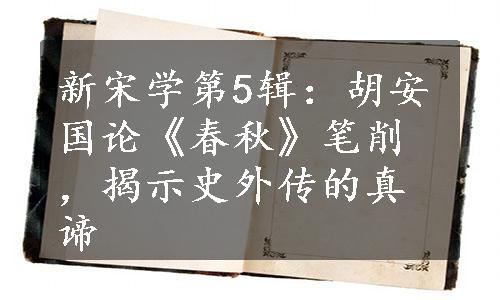 新宋学第5辑：胡安
国论《春秋》笔削
，揭示史外传的真
谛